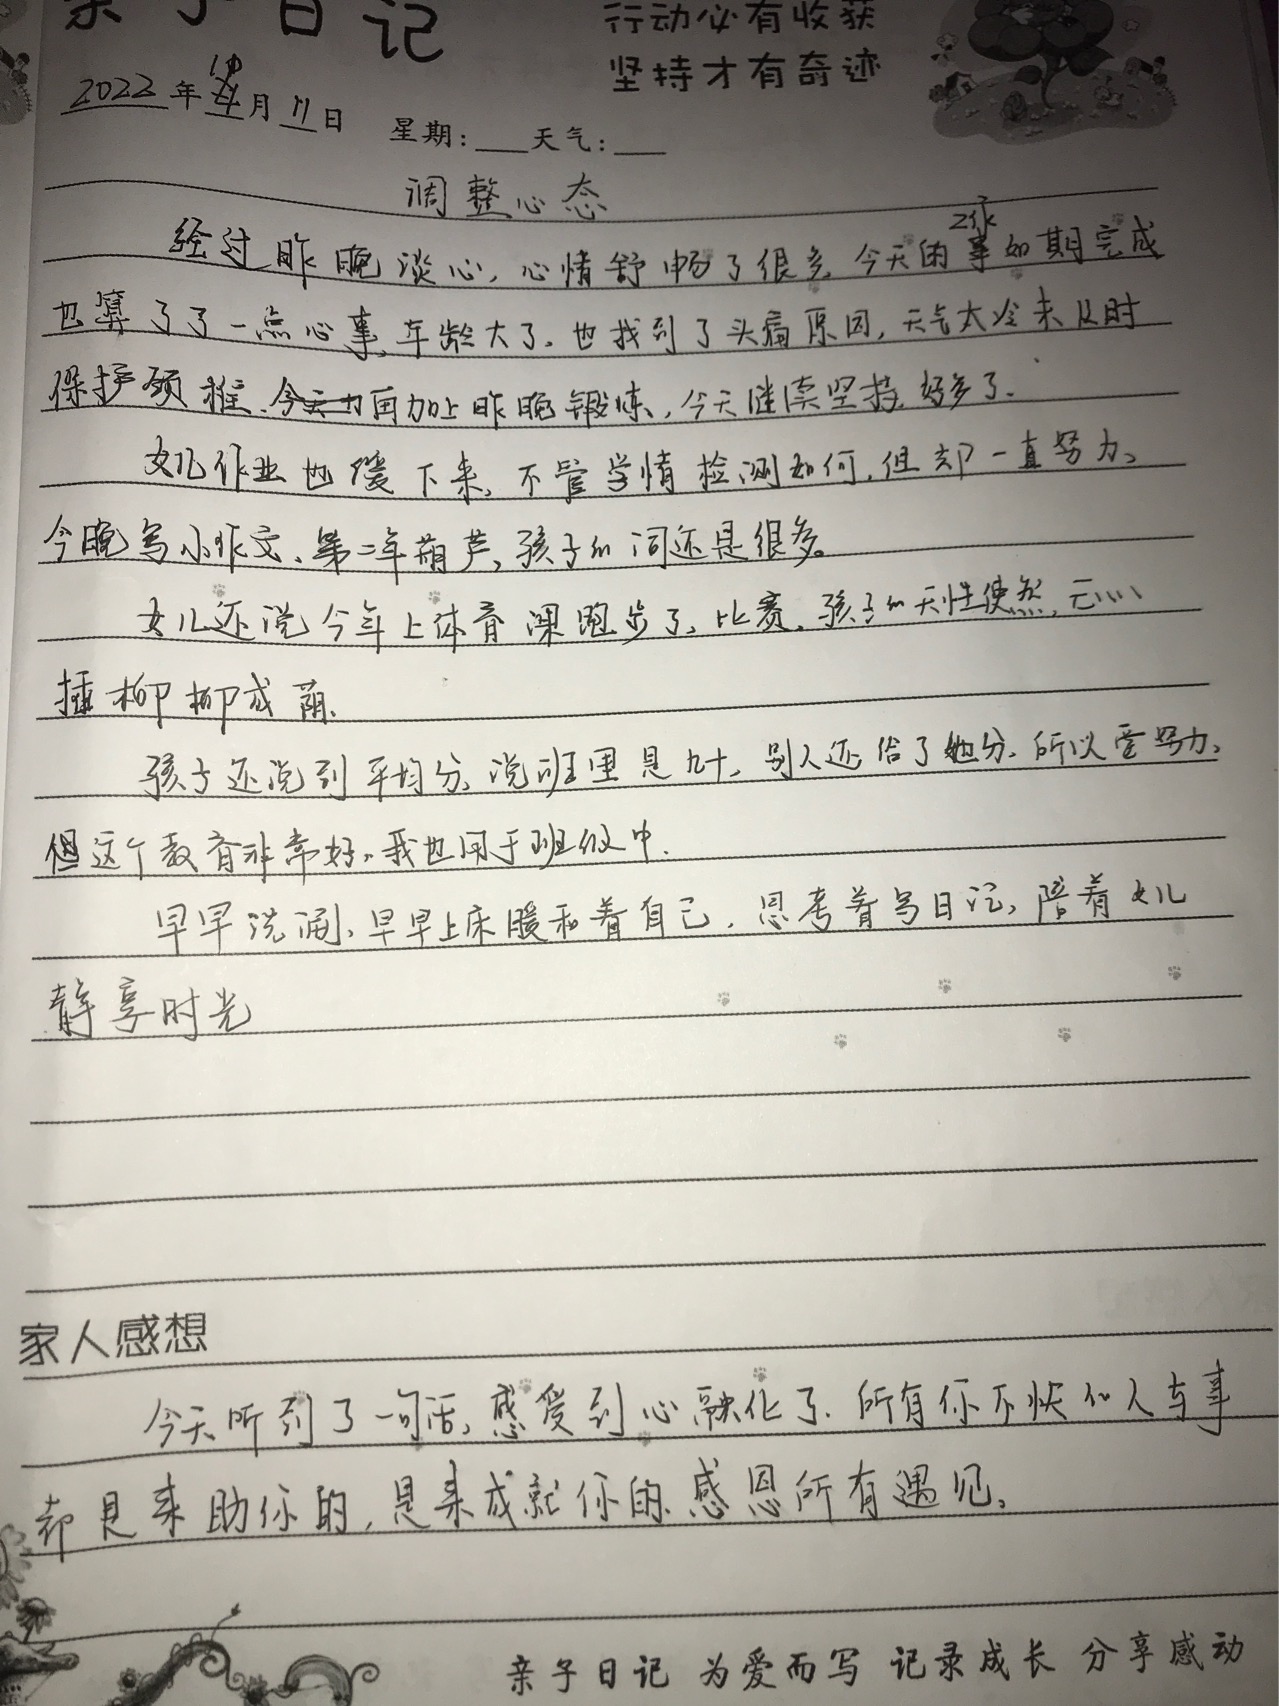 亲子日记
行动必有收获
坚持才有奇迹
2022年 月11日
星期： 天气：
调整心态
经过昨晚谈心，心情舒畅了很多，今天的工作事如期完成
也算了了一点心事，年龄大了，也找到了头痛原因，天气太冷未及时
保护颈椎，再加上昨晚锻炼，今天继续坚持，好多了.
女儿作业也缓下来，不管学情检测如何，但却一直努力，
今晚写小作文，第二年葫芦，孩子的词还是很多。
女儿还说今年上体育课跑步了，比赛，孩子的天性使然，无心
插柳柳成荫.
孩子还说到平均分，说班里是九十，别人还给了她分，所以要努力，
但这个教育非常好，我也用于班级中.
早早洗漱，早早上床暖和着自己，思考着写日记，陪着女儿
静享时光
家人感想
今天听到了一句话，感受到心融化了，所有你不快的人与事
都是来助你的，是来成就你的，感恩所有遇见。
亲子日记 为爱而写 记录成长 分享感动